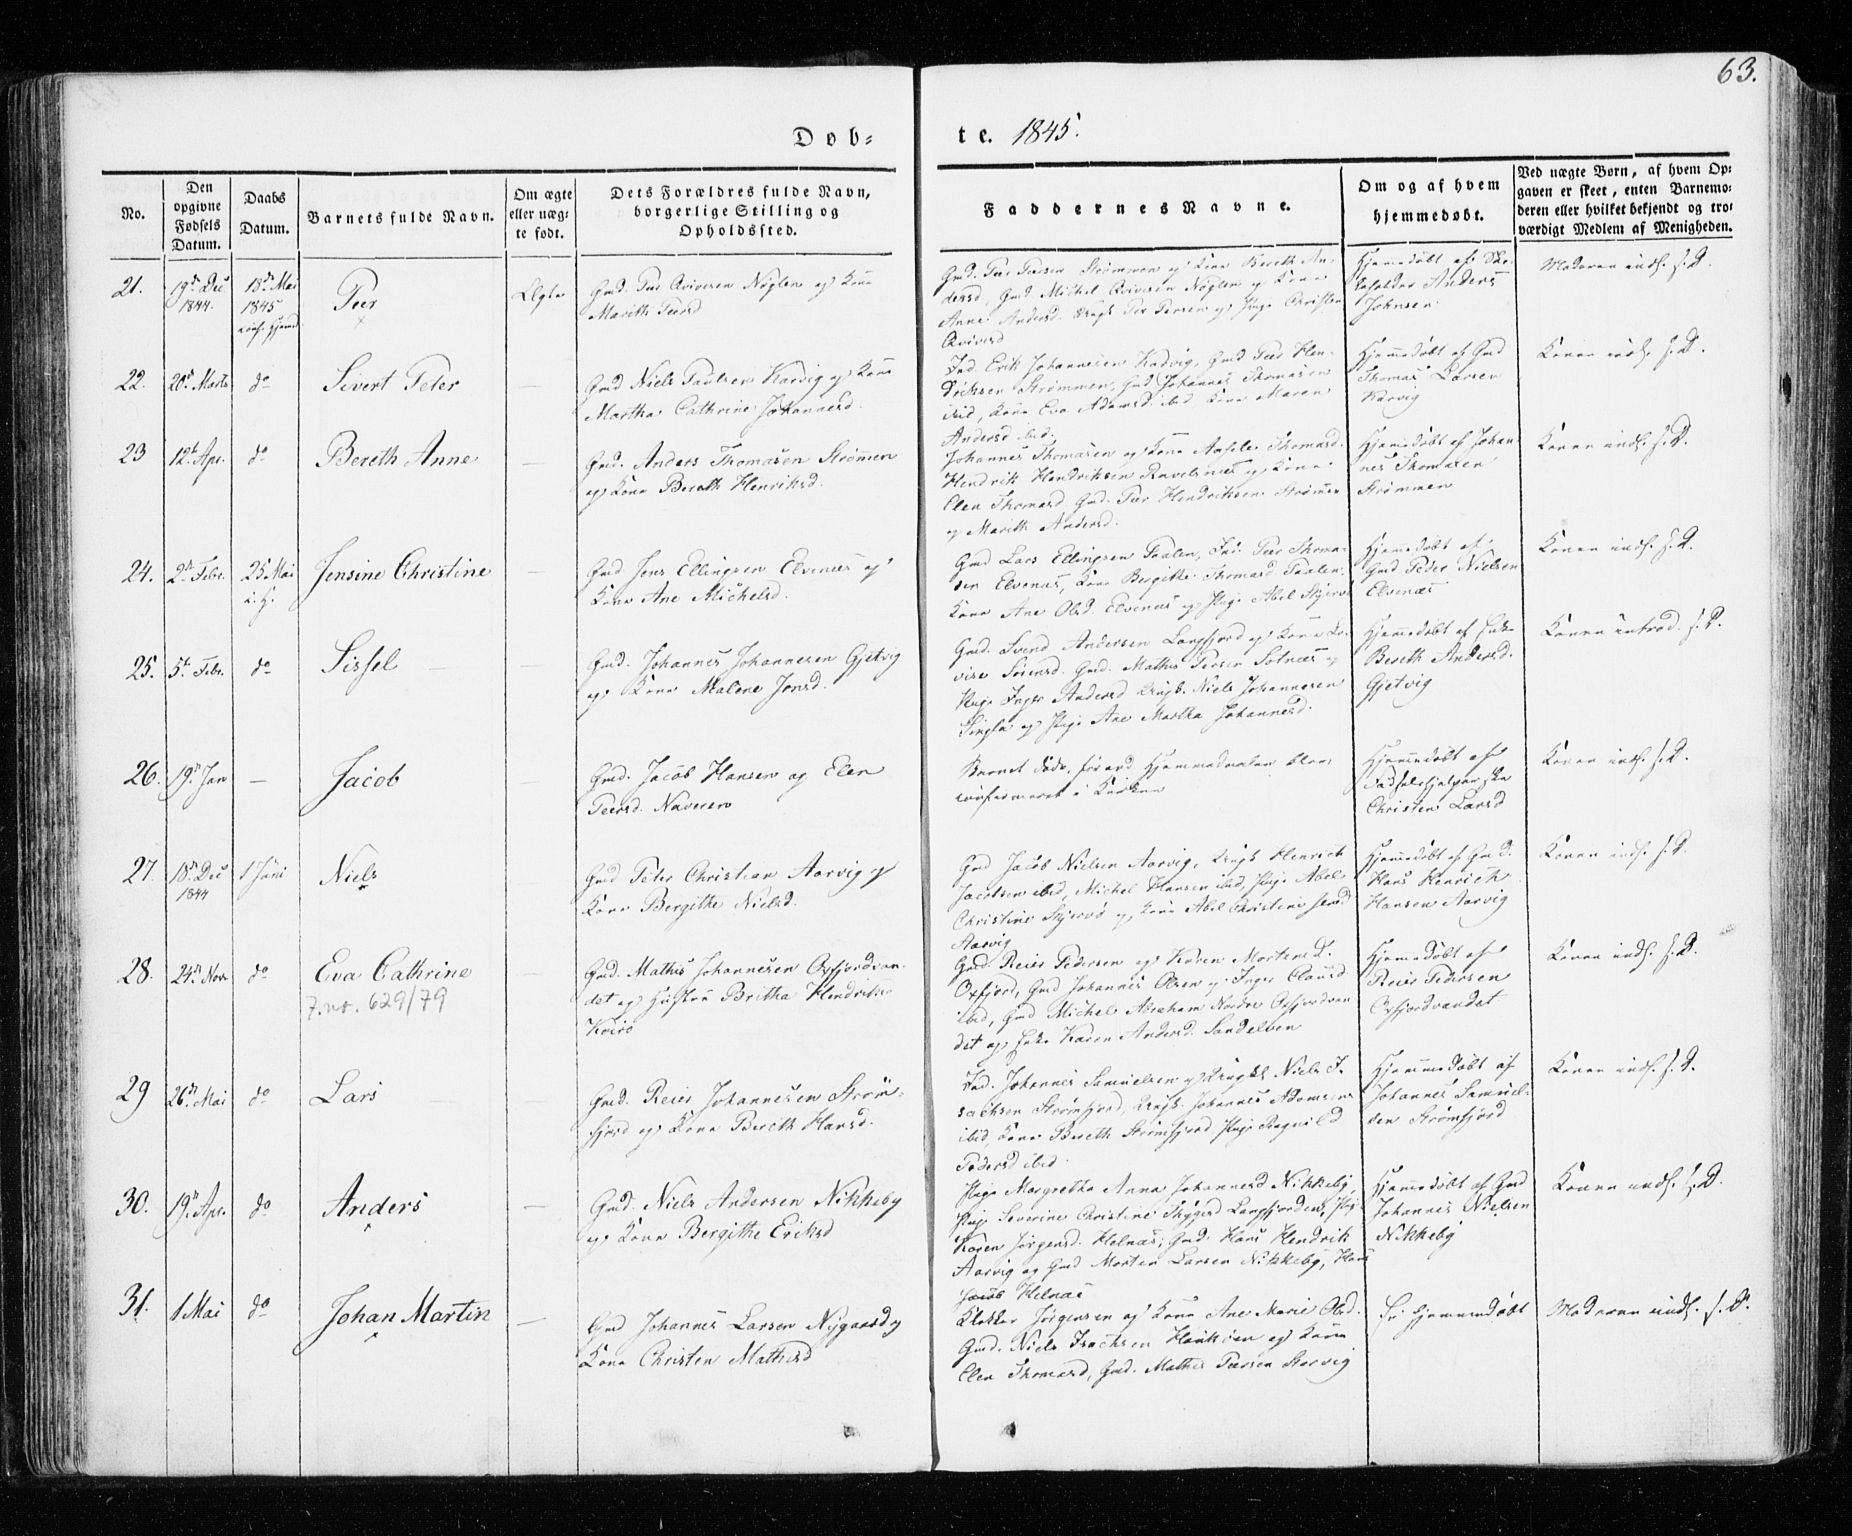 63.
Døb-
te. 1845.
No.
Den opgivne Fødsels Datum.
Daabs Datum.
Barnets fulde Navn.
Om ægte eller uæg- te født.
Dets Forældres fulde Navn, borgerlige Stilling og Opholdssted.
Faddernes Navne.
Om og af hvem hjemmedøbt.
Ved uægte Børn, af hvem Op- gaven er skeet, enten Barnemo- deren eller hvilket bekjendt og tro- værdigt Medlem af Menigheden.
21.
19de Dec
1844.
18de Mai
1845
Peer
Ægte
Gmd. Peer Nøglen og Kone
Marith Peersd
Gmd. Peer Peersen Strømmen og Kone Bereth An-
dersd, Gmd Michel Nøglen og Kone
Anne Andersd. Ungk. Per Persen og Pige Christen
Hjemmedøbt af
Anders
Johnsen
Moderen indl. s. D.
22.
20de Marts
do
Sivert Peter
—
Gmd Niels Paulsen Karvig og Kone
Martha Cathrine Johannesd.
Ind. Erik Johannesen Karvig, Gmd Peer Hen-
driksen Strømmen, Gmd Johannes Thomasen
ibid, Kone Eva Adamsd. ibid, Kone Maren
Andersd ibid.
Hjemmedøbt af Gmd
Thomas Larsen
Karvig
Konen indl. s. D.
23
12te Apr.
do
Bereth Anne
—
Gmd. Anders Thomasen Strømmen
og Kone Bereth Henriksd.
Johannes Thomasen og Kone Thomasd.
Hendrik Hendriksen Ravelsnæs og Kone
Elen Thomasd, Gmd. Peer Hendriksen Strømmen
og Marith Andersd.
Hjemmedøbt af Johan-
nes Thomasen
Strømmen
Konen indl. s. D.
24.
2den Febr.
25 Mai
i. H.
Jensine Christine
—
Gmd Jens Ellingsen Elvenæs og
Kone Ane Michelsd.
Gmd Lars Ellingsen Taalen, Ind. Peer Thoma-
sen Elvenæs, Kone Bergitte Thomasd Taalen
Kone Ane Olsd. Elvenæs og Pige Abel Skjervø
Hjemmedøbt af
Gmd Peder Nielsen
Elvenæs
Konen indl. s. D.
25.
5te Febr.
do
Sissel
—
Gmd. Johannes Johannesen Gjetvig
og Kone Malene Jonsd.
Gmd. Svend Andersen Langfjord og Kone Lo-
vise Sørensd. Gmd. Mathis Persen Sotnæs og
Pige Inger Andersd Ungk. Niels Johannesen
Singla og Pige Ane Martha Johannesd.
Hjemmedøbt af Enke
Bereth Andersd.
Gjetvig
Konen introd. s. D.
26.
19de Jan
—
Jacob
—
Gmd. Jacob Hansen og Elen
Peersd. Naveren
Barnet døde, førend Hjemmedaaben blev
confirmeret i Kirken
Hjemmedøbt af
Fødselshjelperske
Christen Larsd
Konen indl. s. D.
27.
18de Dec
1844
1 Juni
Niels
Gmd Peter Christian Aarvig og
Kone Bergithe Nielsd.
Gmd Jacob Nielsen Aarvig, Ungk Henrich
Jacobsen ibid, Michel Hansen ibid, Pige Abel
Christine Skjervø og Kone Abel Christine
Aarvig
Hjemmedøbt af Gmd.
Hans Henrich
Hansen Aarvig
Konen indl. s. D.
28.
24de Nov.
do
Eva Cathrine
7. no. 629/79
—
Gmd. Mathis Johannesen Oxfjordvan-
det og Hustru Britha Hendriksd
Gmd. Reier Pedersen og Karen Mortensd.
Oxfjord, Gmd Johannes Olsen og Inger Clausd
ibid, Gmd Michel Abraham Nordre Oxfjordvan-
det og Enke Karen Andersd. Sandelven
Hjemmedøbt af
Reier Pedersen
Oxfjordvandet
Konen indl. s. D.
29
26de Mai
do
Lars
—
Gmd. Reier Johannesen Strøm-
fjord og Kone Bereth Hansd.
Ind. Johannes Samuelsen og Ungk. Niels I-
sachsen Strømfjord, Ungk. Johannes Adamsen
ibid, Kone Bereth Strømfjord Pige Ragnild
Pedersd ibid
Hjemmedøbt af
Johannes Samuel-
sen Strømfjord
Konen indl. s. D.
30.
19de Apr.
do
Anders
—
Gmd. Niels Andersen Nikkeby
og Kone Bergithe Eriksd
Pige Margretha Anna Johannesd Nikkeby
Pige Severine Christine Langfjorden, Pige
Karen Jørgensd. Helnæs; Gmd. Hans Hendrik
Aarvig og Gmd Morten Larsen Nikkeby, Hans
Jacob Helnæs
Hjemmedøbt af Gmd
Johannes Nielsen
Nikkeby
Konen indl. s. D.
31.
1 Mai
do
Johan Martin
—
Gmd Johannes Larsen Nygaard og
Kone Christen Mathisd
Klokker Jørgensen og Kone Ane Marie Olsd.
Gmd. Niels Isachsen Haukøen og Kone
Elen Thomasd, Gmd. Mathis Peersen Storvig
Ei hjemmedøbt
Moderen indl. s. D.